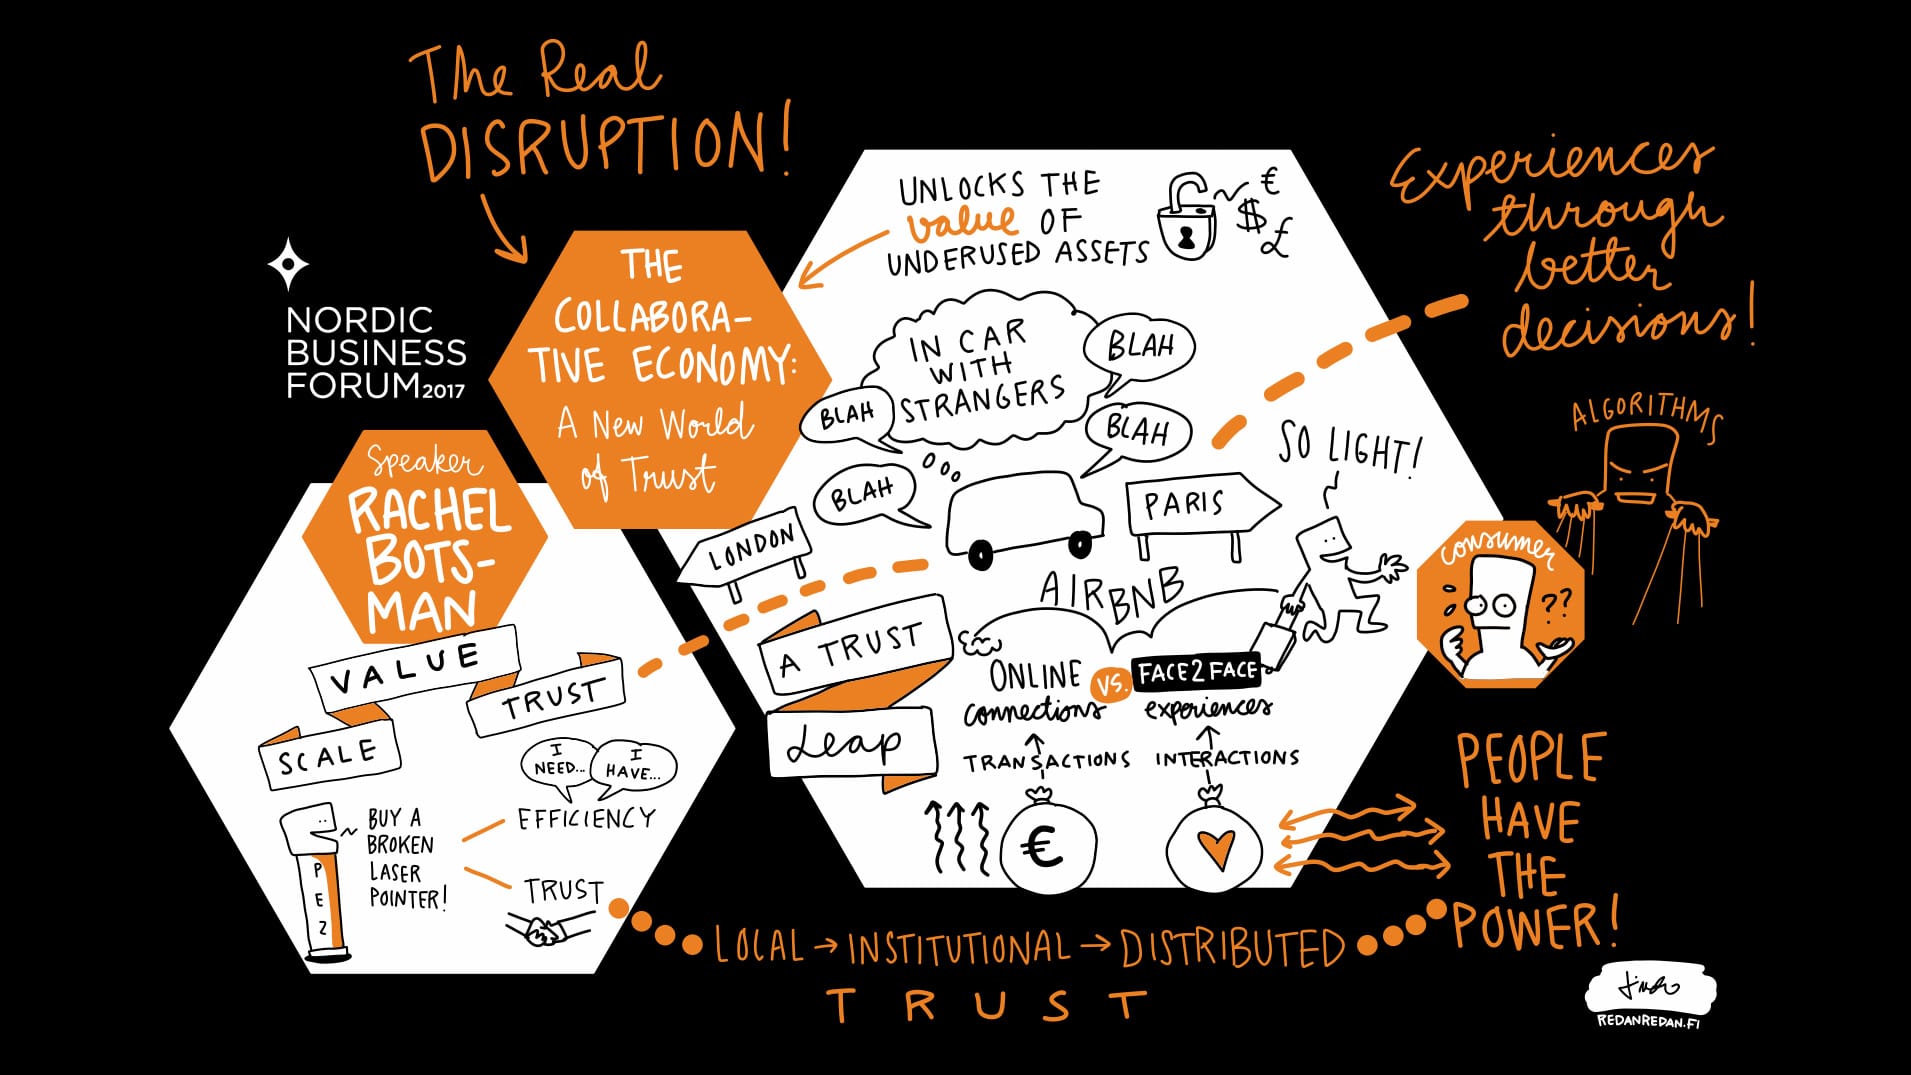 The Real
DISRUPTION!
NORDIC
BUSINESS
FORUM2017
THE
COLLABORA-
TIVE ECONOMY:
A New World
of Trust
Speaker
RACHEL
BOTS-
MAN
VALUE
TRUST
SCALE
I
NEED...
I
HAVE...
EFFICIENCY
BUY A
BROKEN
LASER
POINTER!
P
E
Z
TRUST
UNLOCKS THE
value OF
UNDERUSED ASSETS
€
$
£
IN CAR
WITH
STRANGERS
BLAH
BLAH
BLAH
BLAH
LONDON
PARIS
SO LIGHT!
AIRBNB
A TRUST
Leap
ONLINE
connections
VS.
FACE2FACE
experiences
TRANSACTIONS
INTERACTIONS
€
Experiences
through
better
decisions!
ALGORITHMS
consumer
??
PEOPLE
HAVE
THE
POWER!
LOCAL → INSTITUTIONAL → DISTRIBUTED
TRUST
REDANREDAN.FI